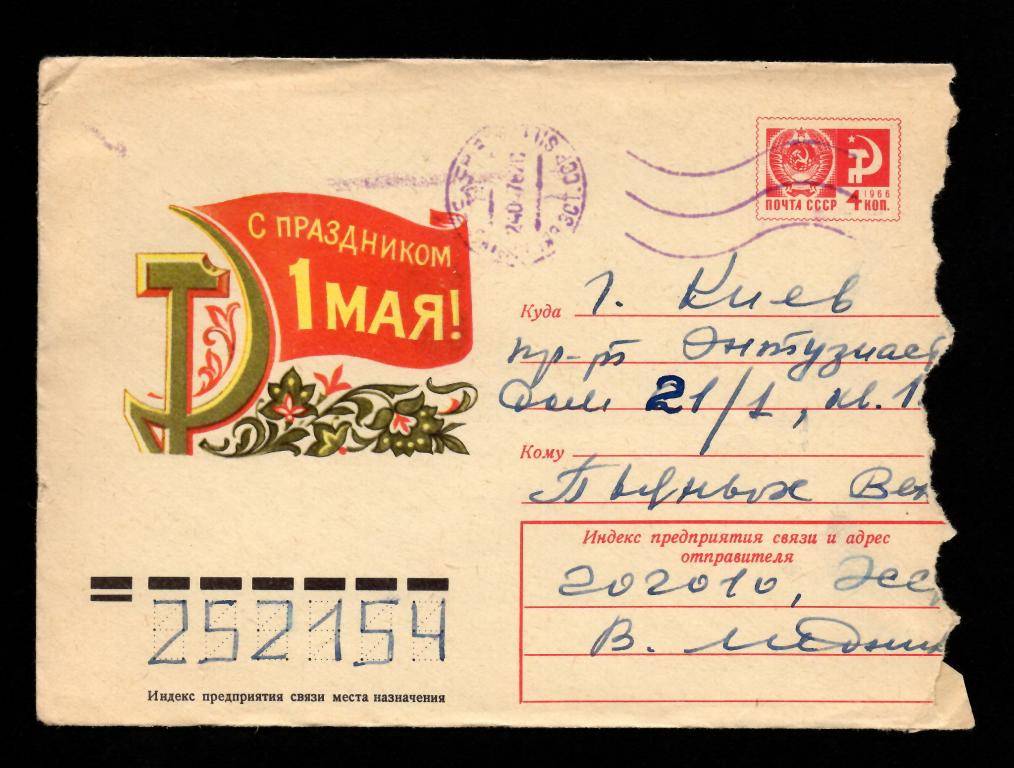 ПОЧТА СССР
1966
4 КОП.
С ПРАЗДНИКОМ
1 МАЯ!
Куда г. Киев
пр-т Энтузиаст
Дом 21/1, кв. 1
Кому
Вен
Индекс предприятия связи и адрес
отправителя
202010, Эсс
В. Медник
252154
Индекс предприятия связи места назначения